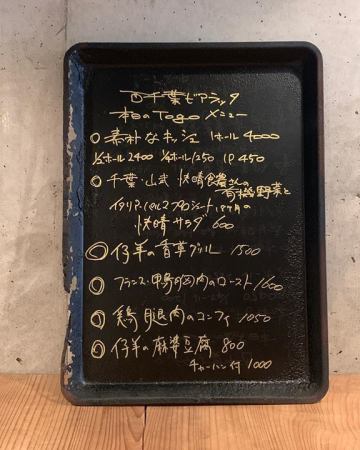 西千葉ピアラッタ
本日のTogo メニュー
○ 素朴なキッシュ 1ホール 4000
1/2ホール 2400 1/4ホール 1250 1P 450
○ 千葉・山武 快晴食農さんの
有機野菜と
イタリア・パルマプロシュート 18ヶ月の
快晴サラダ 600
○ 仔羊の香草グリル 1500
○ フランス・鴨胸肉のロースト 1600
○ 鶏腿肉のコンフィ 1050
○ 仔羊の麻婆豆腐 800
チャーハン付 1000